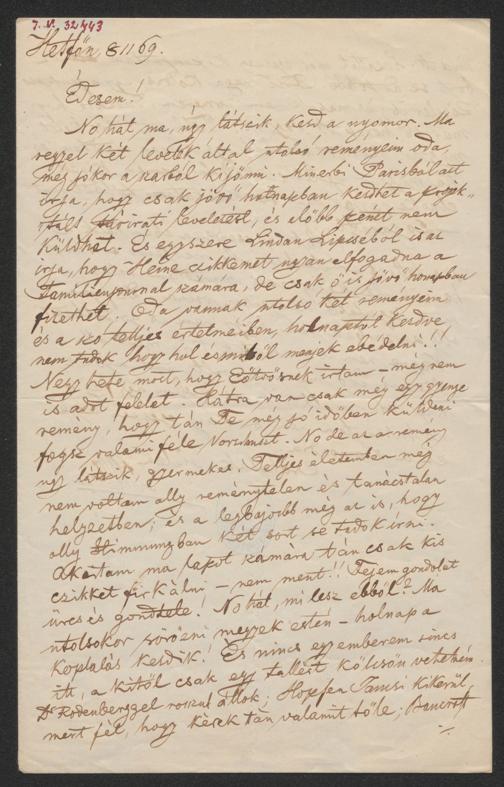 7. V. 32443
Hétfőn, 8 11 69.
Édesem!
No hát ma, úgy látszik, kezd a nyomor. Ma
reggel két levelek által utolsó reményeim oda,
még jókor a harból kijönni. Minerbi Párisból azt
írja, hogy csak jövő holnapban kezdhet a
leveleteel, és előbb pénzt nem
küldhet. És egyszere Lindau Lipcséből is azt
írja, hogy Heine czikkemet ugyan elfogadna a
Familienjournal számára, de csak ő is jövő honapban
fizethet. Oda vannak utolso két reményeim
és a szó telljes értelmeiben, holnaptól kezdve
nem tudok hogy hol és miből menjek ebédelni!!!
Négy hete most, hogy Eötvösnek írtam – még nem
is adot felelet. Hátra van csak még egy gyenge
remény, hogy tán Te még jó időben küldeni
fogsz valami féle Vorschusst. No de az a remény
úgy látszik, gyermekes. Telljes életemben még
nem voltam olly reménytelen és tanácstalan
helyzetben; és a legbajosibb még az is, hogy
olly Stimmungban két sort se tudok írni.
Akartam ma, lapot számára tán csak kis
czikket firkálni – nem ment!! Fejem gondolat
ürcs és gondtele! No hát, mi lesz ebből? Ma
utolsokor sorözni megyek estén – holnap a
koplalás kezdik! És nincs egy emberem sincs
itt, a kitől csak egy tallért kölcsön vehetném.
Dr Rodenberggel rosszul állok; Hopfen Tamsi kikerül,
mert fél, hogy kérek tán valamit tőle; Bancroft
·/.